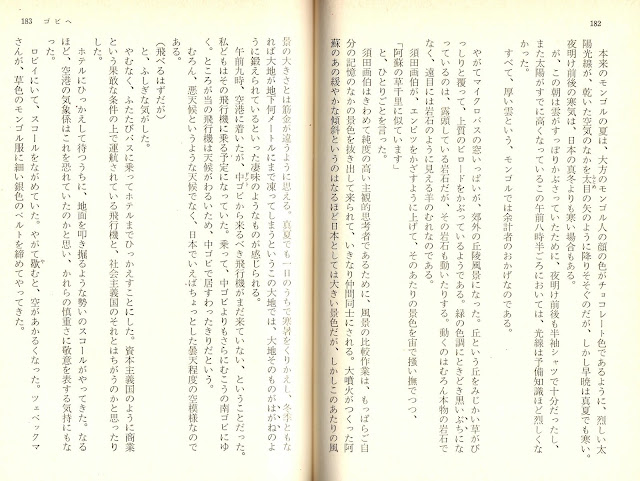 182
本来のモンゴルの夏は、大方のモンゴル人の顔の色がチョコレート色であるように、烈しい太
陽光線が、乾いた空気のなかを大目の矢のように降りそそぐのだが、しかし早暁は真夏でも寒い。
夜明け前後の寒気は、日本の真冬よりも寒い場合もある。
が、この朝は雲がすっぽりかぶさっていたために、夜明け前後も半袖シャツで十分だったし、
また太陽がすでに高くなっているこの午前八時半ごろにおいては、光線は予備知識ほど烈しくな
かった。
すべて、厚い雲という、モンゴルでは余計者のおかげなのである。
やがてマイクロバスの窓いっぱいが、郊外の丘陵風景になった。丘という丘をみじかい草がび
っしりと覆って、上質のビロードをかぶっているようである。緑の色調にときどき黒いぶちにな
っているのは、露頭している岩石だが、その岩石も動いたりする。動くのはむろん本物の岩石で
なく、遠目には岩石のように見える羊のむれなのである。
須田画伯が、エンピツをかざすように上げて、そのあたりの景色を宙で掻い撫でつつ、
「阿蘇の草千里に似ています」
と、ひとりごとを言った。
須田画伯はきわめて純度の高い主観的思考者であるために、風景の比較作業は、もっぱらご自
分の記憶のなかの景色を抜き出して来られて、いきなり仲間同士にされる。大噴火がつくった阿
蘇のあの緩やかな傾斜というのはなるほど日本としては大きい景色だが、しかしこのあたりの風
183 ゴビへ
景の大きさとは勘定が違うように思える。真夏でも一日のうちで寒暑をくりかえし、冬季ともな
れば大地が地下何メートルにまで凍ってしまうというこの大地では、大地そのものがはがねのよ
うに鍛えられているといった凄味のようなものが感じられる。
午前九時、空港に着いたが、中ゴビから来るべき飛行機がまだ来ていない、ということだった。
私どもはその飛行機に乗る予定になっていた。乗って、中ゴビよりもさらにむこうの南ゴビにゆ
く。ところが当の飛行機は天候がわるいため、中ゴビで居すわったきりだという。
むろん、悪天候というような天候でなく、日本でいえばちょっとした曇天程度の空模様なので
ある。
(飛べるはずだが)
と、ふしぎな気がした。
やむなく、ふたたびバスに乗ってホテルまでひっかえすことにした。資本主義国のように商業
という果敢な条件の上で運航されている飛行機と、社会主義国のそれとはちがうのかと思ったり
した。
ホテルにひっかえして待つうちに、地面を叩き掘るような勢いのスコールがやってきた。なる
ほど、空港の気象係はこれを恐れていたのかと思い、かれらの慎重さに敬意を表する気持にもな
った。
ロビイにいて、スコールをながめていた。やがて歇むと、空があかるくなった。ツェベックマ
さんが、草色のモンゴル服に細い銀色のベルトを締めてやってきた。